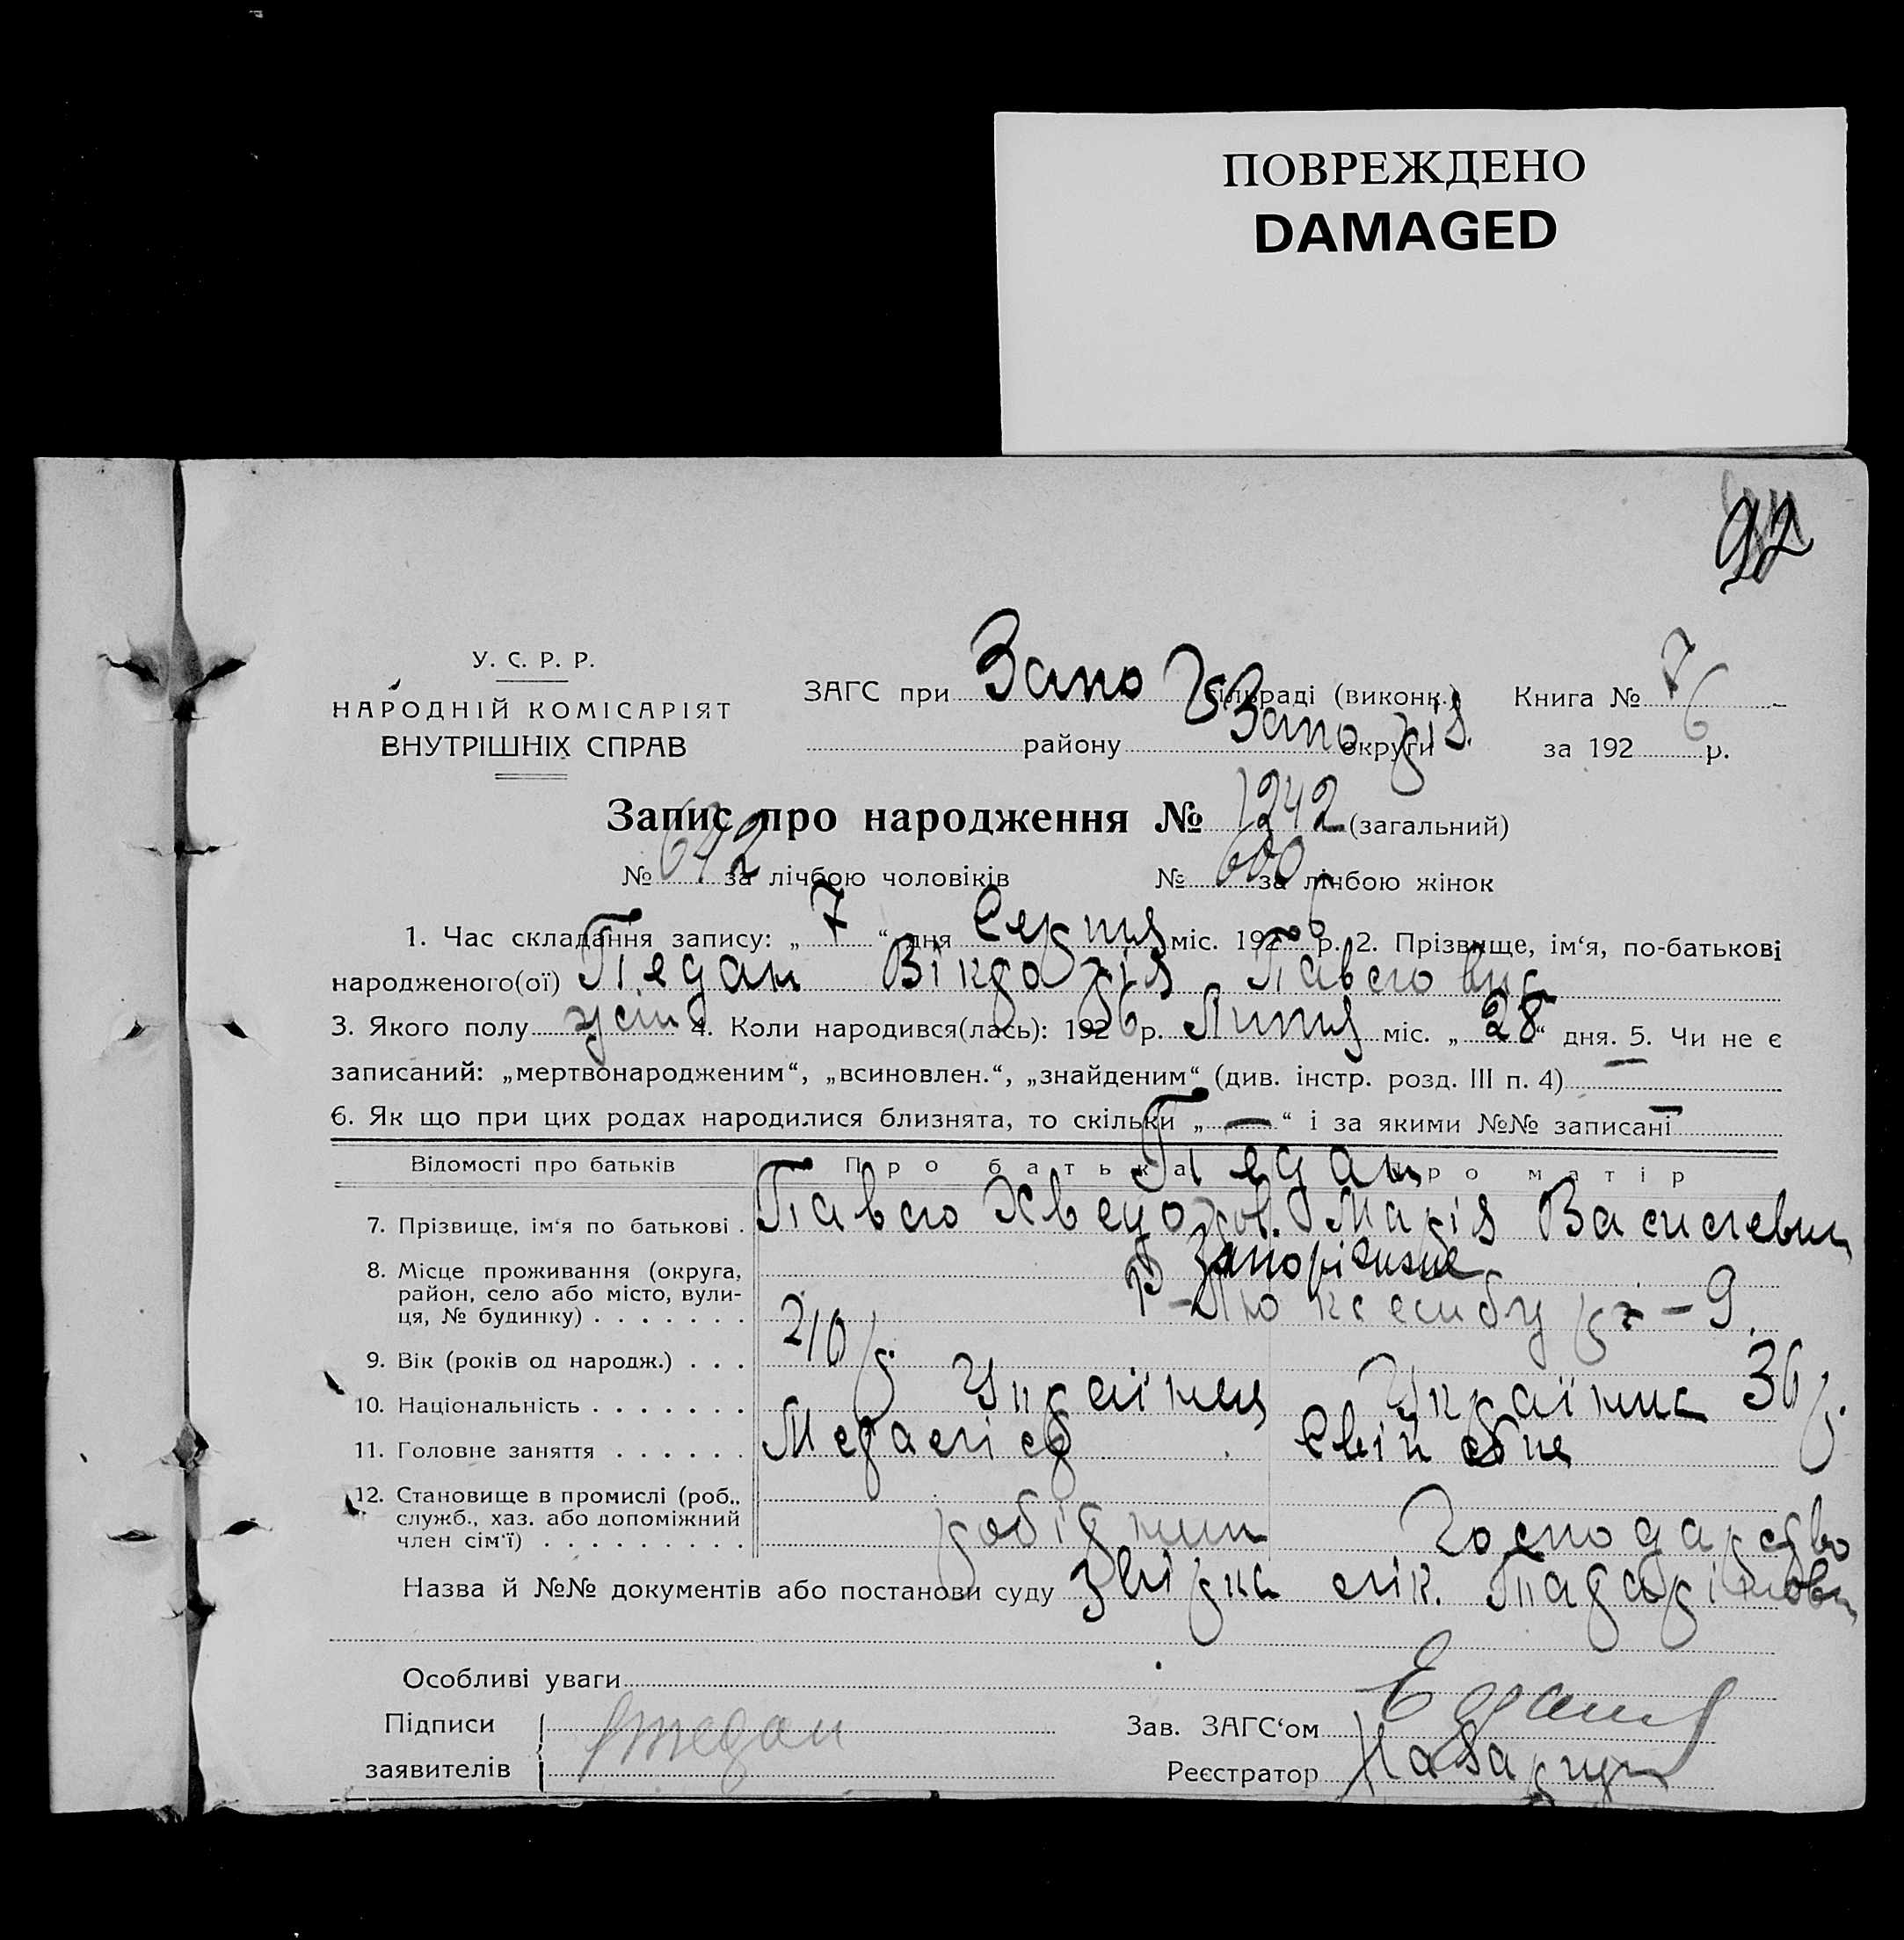 ПОВРЕЖДЕНО
DAMAGED
92
У. С. Р. Р.
НАРОДНІЙ КОМІСАРІЯТ
ВНУТРІШНІХ СПРАВ
ЗАГС при Запо сільраді (виконк.) Книга № 7
району Запоріз. округи за 1926 р.
Запис про народження № 1242 (загальний)
№ 642 за лічбою чоловіків № 600 за лічбою жінок
1. Час складання запису: „ 7 “ дня Серпня міс. 1926 р. 2. Прізвище, ім‘я, по-батькові
народженого(ої) Педан Вікторія Павловна
3. Якого полу жін 4. Коли народився(лась): 1926 р. Липня міс. „ 28 “ дня. 5. Чи не є
записаний: „мертвонародженим“, „всиновлен.“, „знайденим“ (див. інстр. розд. III п. 4) —
6. Як що при цих родах народилися близнята, то скільки „ — “ і за якими №№ записані —
Відомості про батьків Про батька Педан Про матір
7. Прізвище, ім‘я по батькові . Павло Хведоров. Марія Василевна
8. Місце проживання (округа, Запоріжжя
район, село або місто, вули-
ця, № будинку) . . . . . . . – 9
9. Вік (років од народж.) . . . 36 р.
10. Національність . . . . . . . Українец Українка
11. Головне заняття . . . . . . Металіст Свійське
12. Становище в промислі (роб.,
служб., хаз. або допоміжний
член сім‘ї) . . . . . . . . . робітник господарство
Назва й №№ документів або постанови суду лік.
Особливі уваги
Підписи Педан Зав. ЗАГС‘ом
заявителів Реєстратор